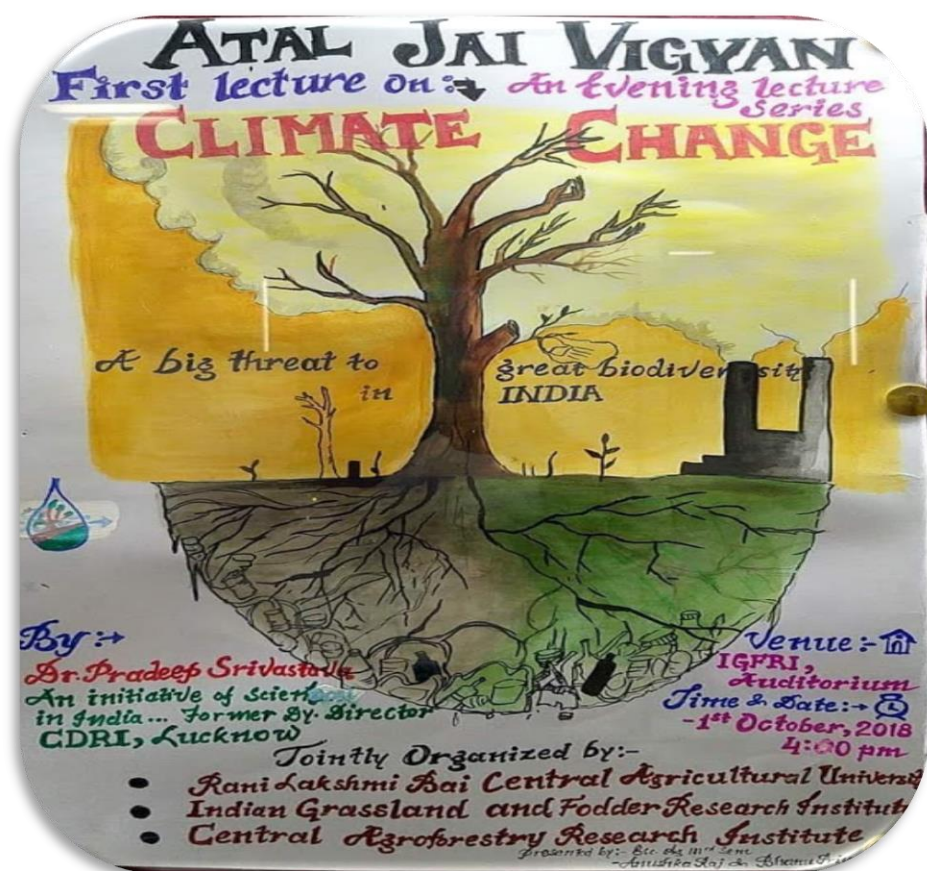 ATAL JAI VIGYAN
First lecture on:
An Evening lecture
Series
CLIMATE CHANGE
A big threat to great biodiversity
in INDIA
By:→
Dr. Pradeep Srivastava
An initiative of
in India... Former Dy. Director
CDRI, Lucknow
Venue:-
IGFRI,
Auditorium
Time & Date:→
-1st October, 2018
4:00 pm
Jointly Organized by:-
• Rani Lakshmi Bai Central Agricultural
• Indian Grassland and Fodder Research
• Central Agroforestry Research Institute
Presented by:- Bsc. Ag IIIrd Sem
-Anushka Raj &